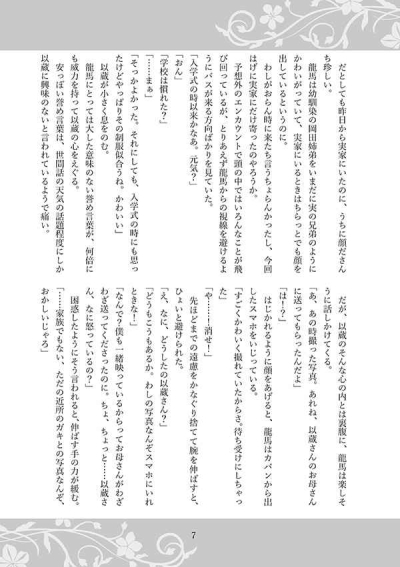 だとしても昨日から実家にいたのに、うちに顔ださん
ち珍しい。
龍馬は幼馴染の岡田姉弟をいまだに実の兄弟のように
かわいがっていて、実家にいるときはちらっとでも顔を
出しているというのに。
わしがおらん時に来たち言うちょらんかったし、今回
はげに実家にだけ寄ったのやろうか。
予想外のエンカウントで頭の中ではいろんなことが飛
び回っているが、とりあえず龍馬からの視線を避けるよ
うにバスが来る方向ばかりを見ていた。
「入学式の時以来かなあ。元気?」
「おん」
「学校は慣れた?」
「……まぁ」
「そっかよかった。それにしても、入学式の時にも思っ
たけどやっぱりその制服似合うね。かわいい」
以蔵が小さく息をのむ。
龍馬にとっては大した意味のない誉め言葉が、何倍に
も威力を持って以蔵の心をえぐる。
安っぽい誉め言葉は、世間話の天気の話題程度にしか
以蔵に興味のないと言われているようで痛い。
だが、以蔵のそんな心の内とは裏腹に、龍馬は楽しそ
うに話しかけてくる。
「あ、あの時撮った写真。あれね、以蔵さんのお母さん
に送ってもらったんだよ」
「は!?」
はじかれるように顔をあげると、龍馬はカバンから出
したスマホをいじっている。
「すごくかわいく撮れていたからさ。待ち受けにしちゃっ
た」
「や……!消せ!」
先ほどまでの遠慮をかなぐり捨てて腕を伸ばすと、
ひょいと避けられた。
「え、なに、どうしたの以蔵さん?」
「どうもこうもあるか。わしの写真なんぞスマホにいれ
ときな!」
「なんで?僕も一緒映っているからってお母さんがわざ
わざ送ってくださったのに。ちょ、ちょっと……以蔵さ
ん、なに怒っているの?」
困惑したようにそう言われると、伸ばす手の力が緩む。
「……家族でもない、ただの近所のガキとの写真なんぞ、
おかしいじゃろ」
7